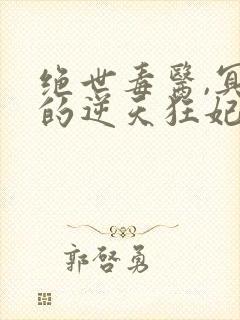 绝世毒醫,冥
的逆天狂妃
郭啓勇